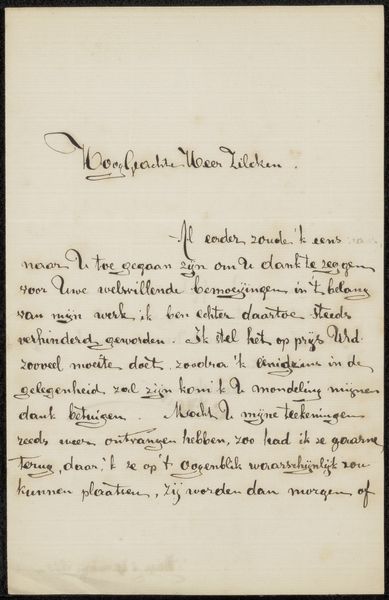 Hooggeachte Heer Zilcken.
Al eerder zoude 'k eens
naar U toe gegaan zijn om U dank te zeggen
voor Uwe welwillende bemoeijingen in 't belang
van mijn werk, ik ben echter daartoe steeds
verhinderd geworden. Ik stel het op prijs Urd.
zooveel moeite doet, zoodra 'k eenigzins in de
gelegenheid zal zijn kom 'k U mondeling mijnen
dank betuigen. Mocht U mijne teekeningen
reeds weer ontvangen hebben, zoo had ik ze gaarne
terug, daar 'k ze op 't oogenblik waarschijnlijk zou
kunnen plaatsen, zij worden dan morgen of